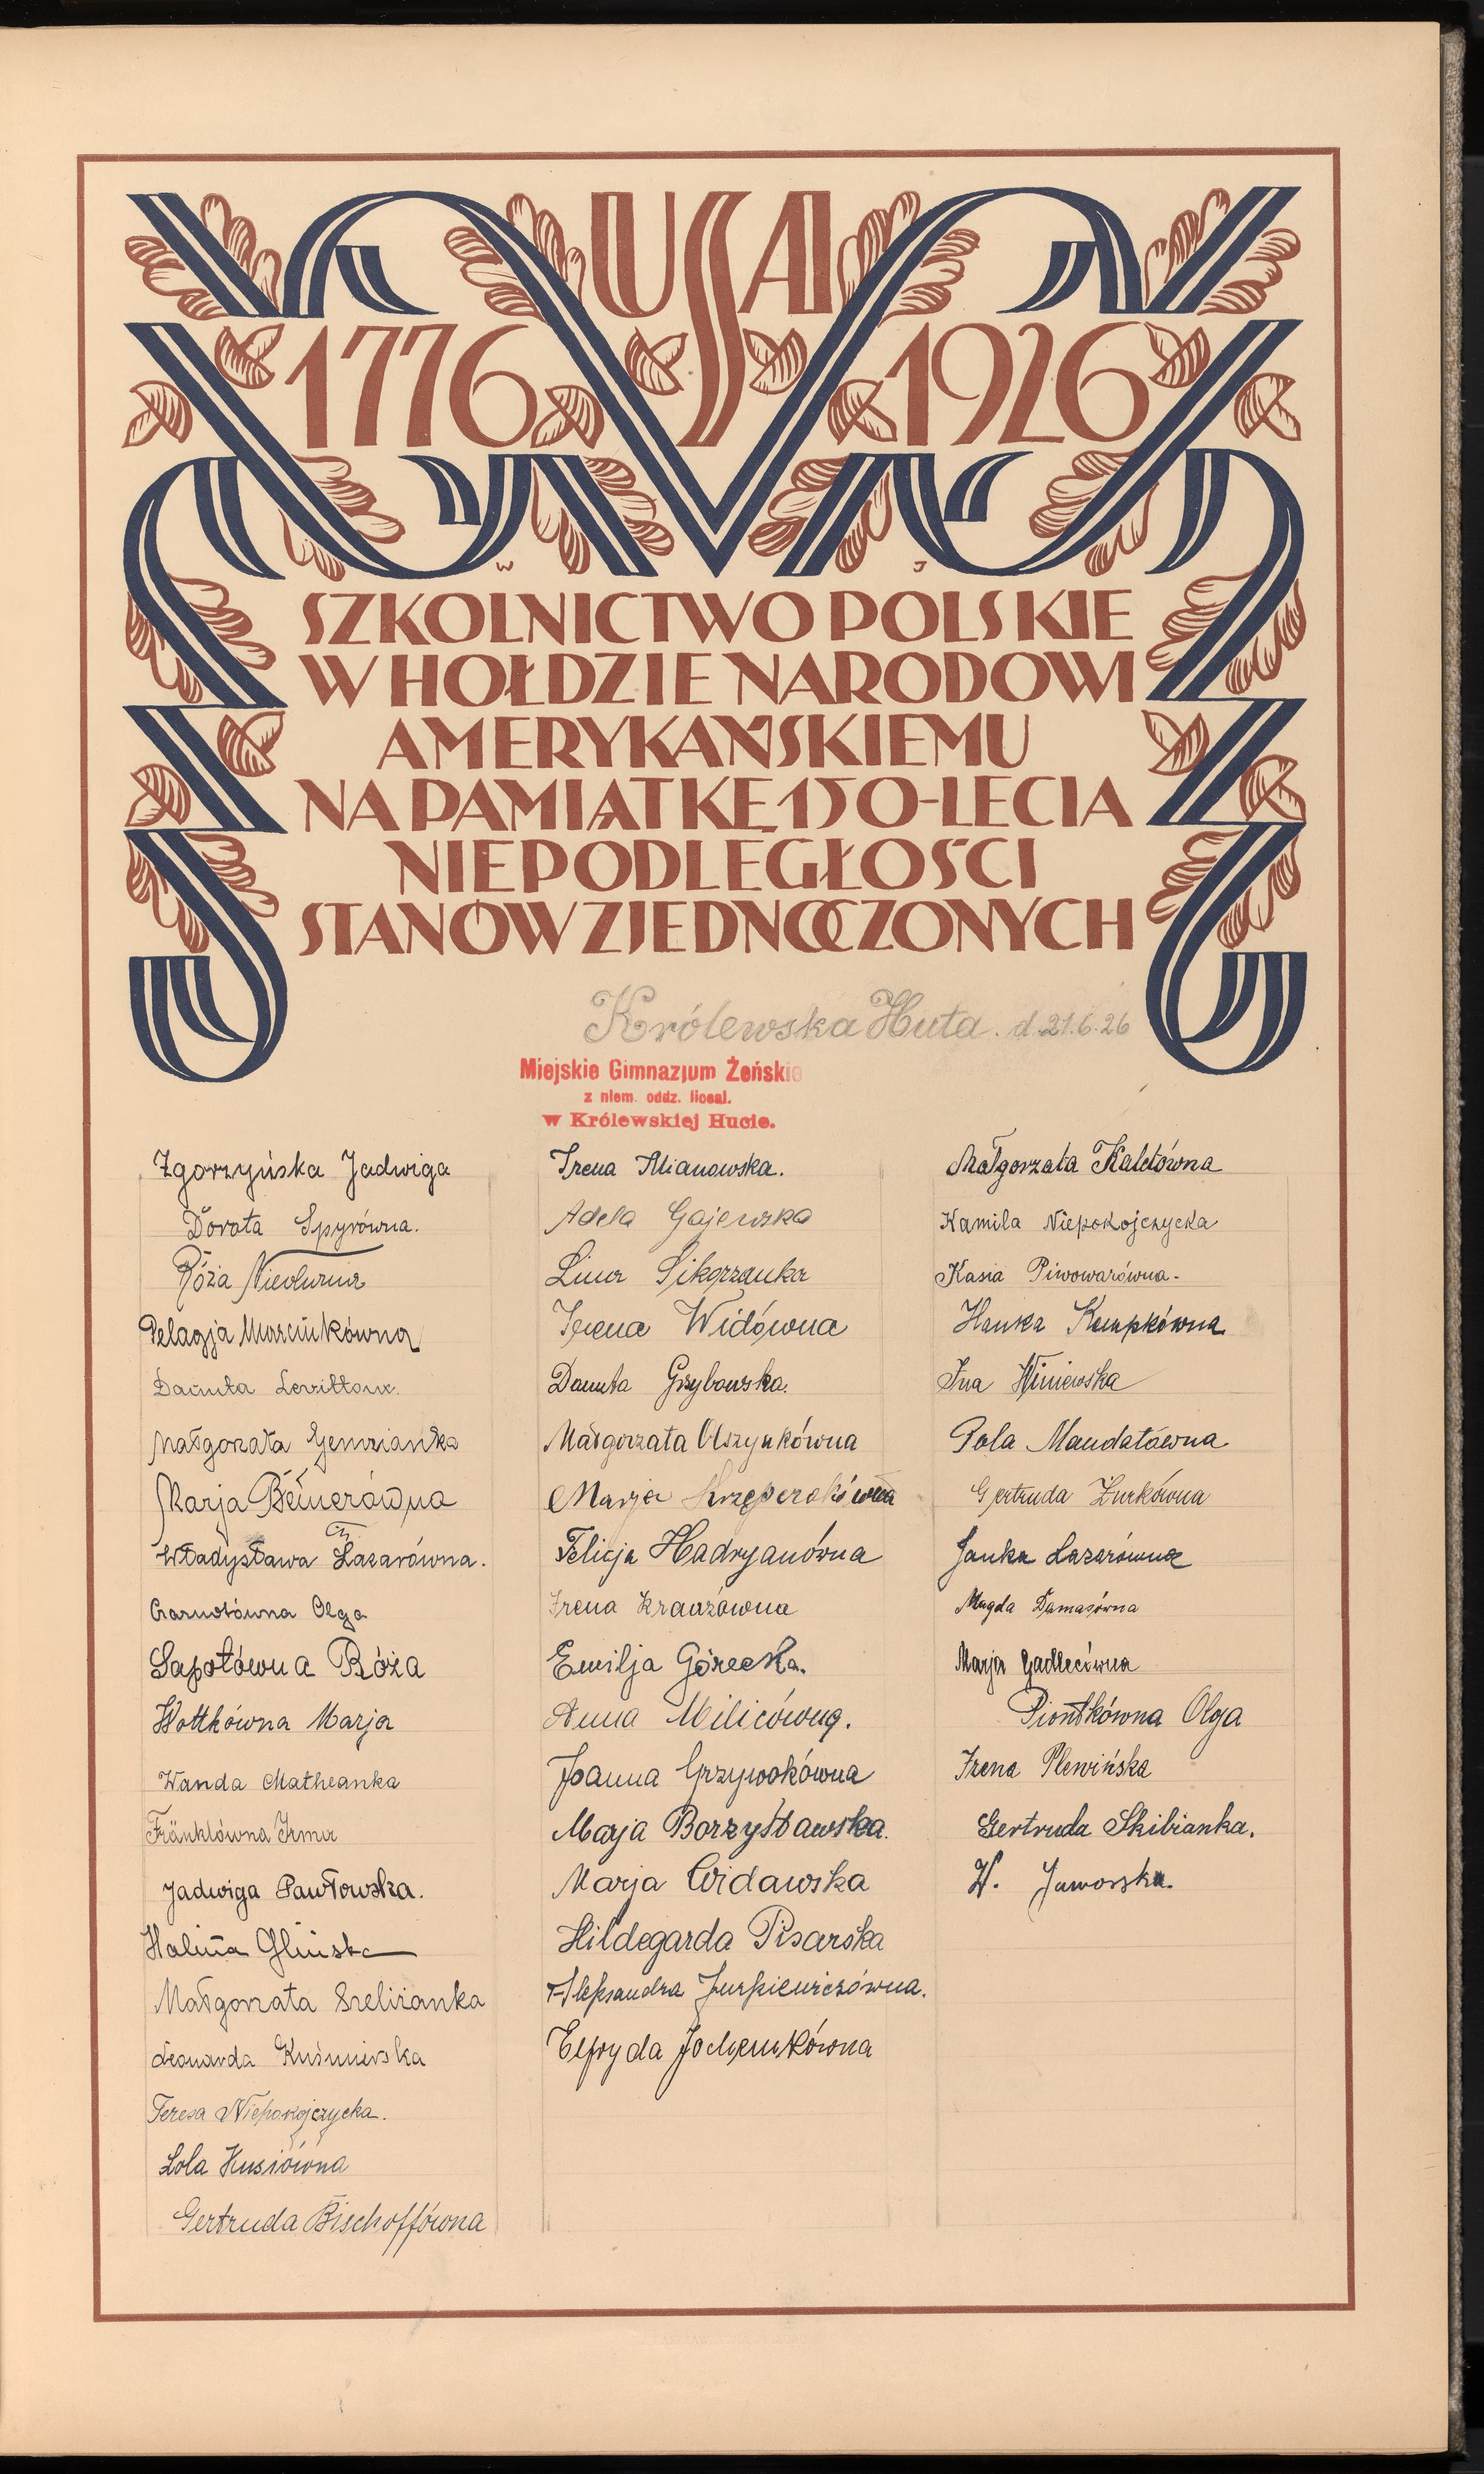 USA
1776 1926
W J
SZKOLNICTWO POLSKIE
W HOŁDZIE NARODOWI
AMERYKAŃSKIEMU
NA PAMIĄTKĘ 150-LECIA
NIEPODLEGŁOŚCI
STANÓW ZJEDNOCZONYCH
Królewska Huta. d. 21.6.26
Miejskie Gimnazjum Żeńskie
z niem. oddz. liceal.
w Królewskiej Hucie.
Zgorzyńska Jadwiga
Dorota Spyrówna.
Róża
Pelagja Morcińkówna
Danuta Levittoux.
Małgorzata
Marja
Władysława Lazarówna.
Czarnotówna Olga
Sapotówna Róża
Wottkówna Marja
Wanda Matheanka
Fränklówna Irma
Jadwiga Pawłowska.
Halina Glińska
Małgorzata Szeliżanka
Leonarda Kuśmierska
Teresa Niepokojczycka.
Lola Kusiówna
Gertruda Bischoffówna
Irena Mianowska.
Adela Gajewska
Lina Sikorzanka
Irena Widówna
Danuta Grzybowska.
Małgorzata Olszynkówna
Marja
Felicja Hadryanówna
Irena Krauzówna
Emilja Górecka.
Anna Milicówna.
Joanna Grzywokówna
Marja Borzysławska.
Marja Widawska
Hildegarda Pisarska
Aleksandra Jurkiewiczówna.
Elfryda Jochemkówna
Małgorzata Kaletówna
Kamila Niepokojczycka
Kasia Piwowarówna.
Hanka Kempkówna
Ina Winiewska
Pola Mandatówna
Gertruda Żurkówna
Janka Lazarówna
Magda Damasówna
Marja Gadlecówna
Piontkówna Olga
Irena Plewińska
Gertruda Skibianka.
W. Jaworska.